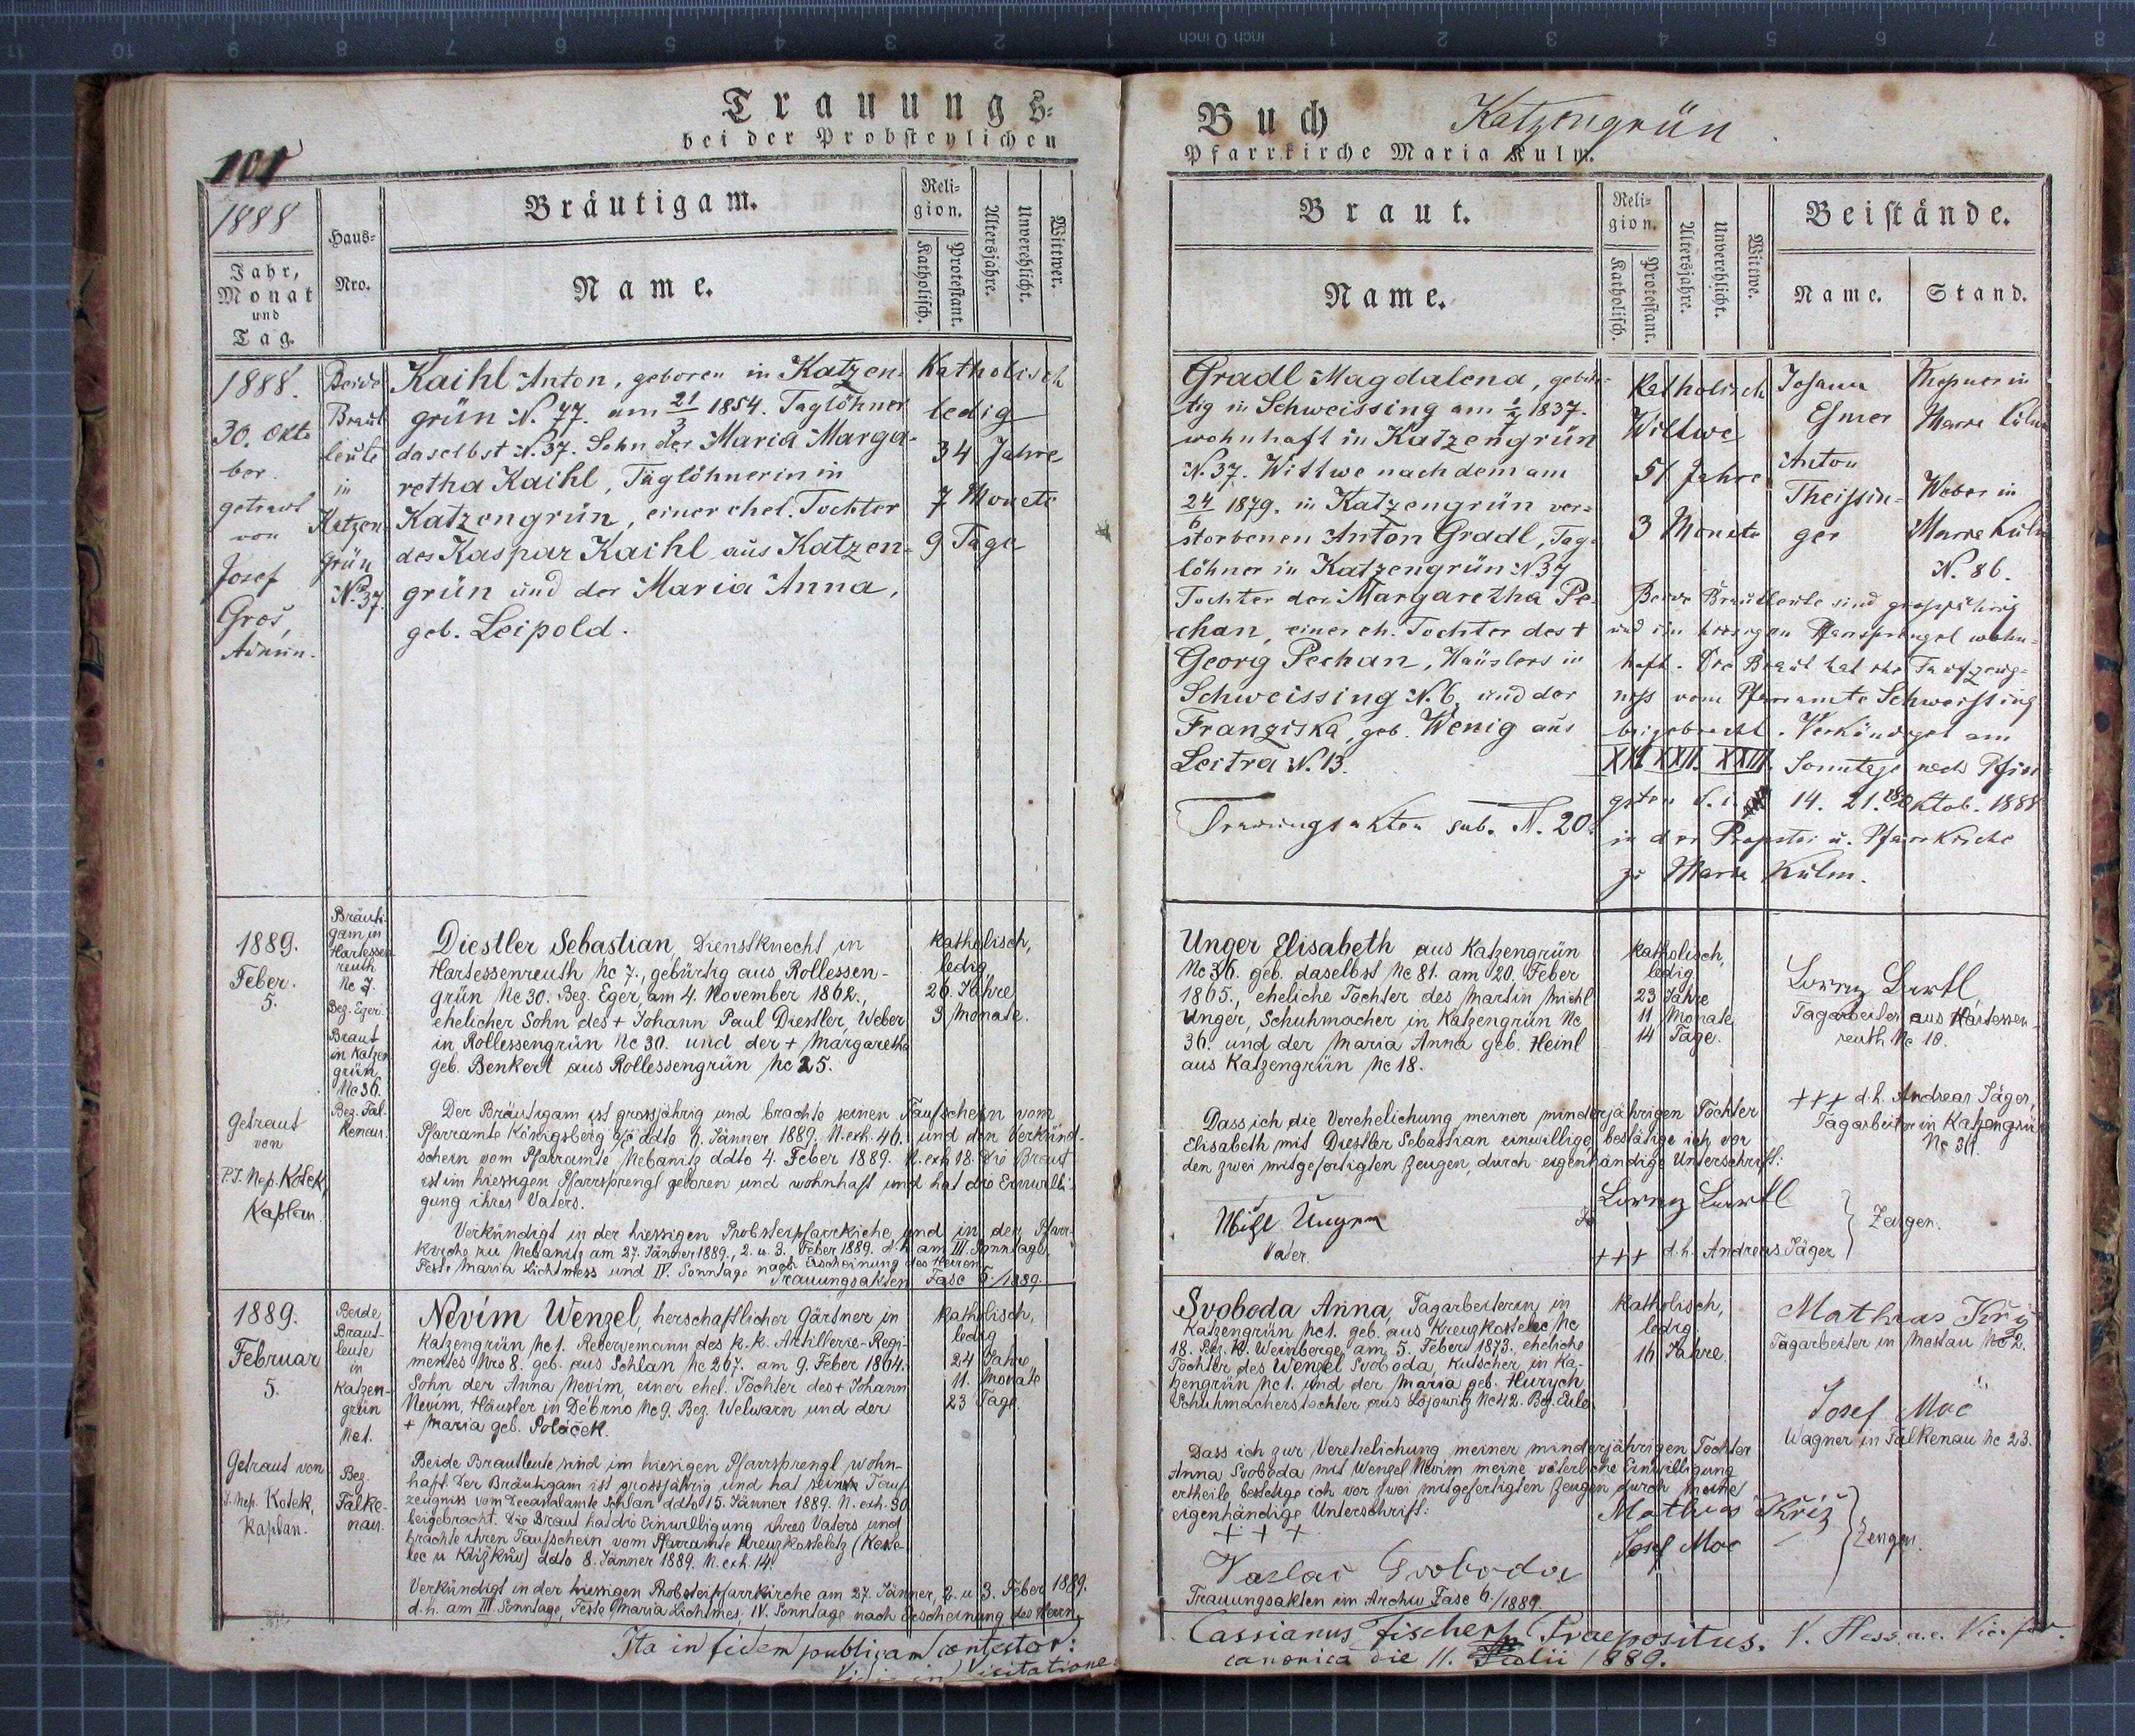 Trauungs-
bei der Probsteylichen
101
1888
Jahr,
Monat
und
Tag.
Haus-
Nro.
Bräutigam.
Name.
Reli-
gion.
Katholisch.
Protestant.
Altersjahre.
Unverehlicht.
Wittwer.
1888.
30. Okto
ber.
getraut
von
Josef
Gros,
Admin.
Beide
Braut
leute
in
Katzen-
grün
N. 37.
Kaihl Anton, geboren in Katzen-
grün N. 77. am 21/3 1854. Taglöhner
daselbst N. 37. Sohn der Maria Marga-
retha Kaihl, Taglöhnerin in
Katzengrün, einer ehel. Tochter
des Kaspar Kaihl aus Katzen-
grün und der Maria Anna,
geb. Leipold.
Katholisch
ledig
34 Jahre
7 Monate
9 Tage
1889.
Feber.
5.
Getraut
von
P.J. Nep. Kotek,
Kaplan.
Bräuti-
gam in
Hartessen
reuth
Nc 7.
Bez. Eger.
Braut
in Katzen
grün
Nc 36.
Bez. Fal-
kenau.
Diestler Sebastian, Dienstknecht in
Hartessenreuth Nc 7., gebürtig aus Rollessen-
grün Nc 30. Bez. Eger, am 4. November 1862.,
ehelicher Sohn des + Johann Paul Diestler, Weber
in Rollessengrün Nc 30. und der + Margaretha
geb. Benkert aus Rollessengrün Nc 25.
Katholisch,
ledig,
26 Jahre
3 Monate.
Der Bräutigam ist grossjährig und brachte seinen Taufschein vom
Pfarramte Königsberg a/E ddto 6. Jänner 1889. N. exh. 46. und den Verkünd-
schein vom Pfarramte Nebanitz ddto 4. Feber 1889. N. exh 18. Die Braut
ist im hiesigen Pfarrsprengl geboren und wohnhaft und hat die Einwilli-
gung ihres Vaters.
Verkündigt in der hiesigen Probsteipfarrkirche und in der Pfarr-
kirche zu Nebanitz am 27. Jänner 1889., 2. u. 3. Feber 1889. d. h. am III. Sonntage,
Feste Maria Lichtmess und IV. Sonntage nach Erscheinung des Herren.
Trauungsakten Fasc 5/1889.
1889.
Februar
5.
Getraut von
J. Nep. Kotek,
Kaplan.
Beide
Braut-
leute
in
Katzen-
grün
Nc 1.
Bez.
Falke-
nau.
Nevim Wenzel, herschaftlicher Gärtner in
Katzengrün Nc 1. Reservemann des k. k. Artillerie-Regi-
mentes Nro 8. geb. aus Schlan Nc 267. am 9. Feber 1864.
Sohn der Anna Nevim, einer ehel. Tochter des + Johann
Nevim, Häusler in Debrno Nc 9. Bez. Welwarn und der
+ Maria geb. Poláček.
Katholisch,
ledig
24 Jahre
11. Monate
23 Tage.
Beide Brautleute sind im hiesigen Pfarrsprengl wohn-
haft. Der Bräutigam ist grossjährig und hat seine Tauf
zeugniss vom Decanalamte Schlan ddto 15. Jänner 1889. N. exh. 30
beigebracht. Die Braut hat die Einwilligung ihres Vaters und
brachte ihren Taufschein vom Pfarramte Kreuzkosteletz (Koste-
lec u Křížků) ddto 8. Jänner 1889. N. exh. 14.
Verkündigt in der hiesigen Probsteipfarrkirche am 27. Jänner, 2. u 3. Feber 1889.
d. h. am III. Sonntage, Feste Maria Lichtmes, IV. Sonntage nach Erscheinung des Herrn.
Ita in fidem publicam contestor:
Vidi in Visitatione
Buch
Katzengrün
Pfarrkirche Maria Kulm.
Braut.
Name.
Reli-
gion.
Katholisch.
Protestant.
Altersjahre.
Unverehlicht.
Wittwe.
Beistände.
Name.
Stand.
Gradl Magdalena, gebür-
tig in Schweissing am 1837.
wohnhaft in Katzengrün
N. 37. Wittwe nach dem am
24/6 1879. in Katzengrün ver-
storbenen Anton Gradl, Tag-
löhner in Katzengrün N 37
Tochter der Margaretha Pe-
chan, einer eh. Tochter des +
Georg Pechan, Häuslers in
Schweissing N. 6, und der
Franziska, geb. Wenig aus
Leitra N. 13.
Trauungsakten sub. N. 20.
Katholisch
Wittwe
51 Jahre
3 Monate
Johann
Esmer
Anton
Theissin-
ger
Messner in
Maria Kulm
Weber in
Maria Kulm
N. 86.
Beide Brautleute sind grossjährig
und im hiesigen Pfarrsprengel wohn-
haft. Die Braut hat ihr Taufzeug-
niss vom Pfarramte Schweissing
beigebracht. Verkündiget am
XXI. XXII. XXIII. Sonntage nach Pfin-
gsten d. i. 14. 21. 28 Oktob. 1888
in der Propstei u. Pfarrkirche
zu Maria Kulm.
Unger Elisabeth aus Katzengrün
Nc 36. geb. daselbst Nc 81. am 20. Feber
1865., eheliche Tochter des Martin Michl
Unger, Schuhmacher in Katzengrün Nc
36. und der Maria Anna geb. Heinl
aus Katzengrün Nc 18.
Katholisch,
ledig
23 Jahre
11 Monate
14 Tage.
Lorenz
Tagarbeiter aus Hartessen-
reuth Nc 10.
+++ d.h. Andreas Jäger,
Tagarbeiter in Katzengrün
Nc 36.
Dass ich die Verehelichung meiner minderjährigen Tochter
Elisabeth mit Diestler Sebastian einwillige, bestätige ich vor
den zwei mitgefertigten Zeugen, durch eigenhändige Unterschrift:
Michl Unger
Vater.
Lorenz
+++ d.h. Andreas Jäger
Zeugen.
Svoboda Anna, Tagarbeiterin in
Katzengrün Nc 1. geb. aus Kreuzkostelec Nc
18. Bez. K. Weinberge, am 5. Feber 1873. eheliche
Tochter des Wenzel Svoboda, Kutscher in Ka-
tzengrün Nc 1. und der Maria geb. Hurych
Schuhmacherstochter aus Lojowitz Nc 42. Bez. Eule.
Katholisch,
ledig
16 Jahre.
Mathias Kříž
Tagarbeiter in Mostau Nc 2.
Josef Moc
Wagner in Falkenau Nc 23.
Dass ich zur Verehelichung meiner minderjährigen Tochter
Anna Svoboda mit Wenzel Nevim meine väterliche Einwilligung
ertheile, bestätige ich vor zwei mitgefertigten Zeugen durch meine
eigenhändige Unterschrift:
+ + +
Vaclav Svoboda
Mathias Kříž
Josef Moc
Zeugen.
Trauungsakten im Archiv Fasc 6/1889.
Cassianus Fischer, Praepositus. V. Hess. a.e. Vic. for.
canonica die 11. Julii 1889.